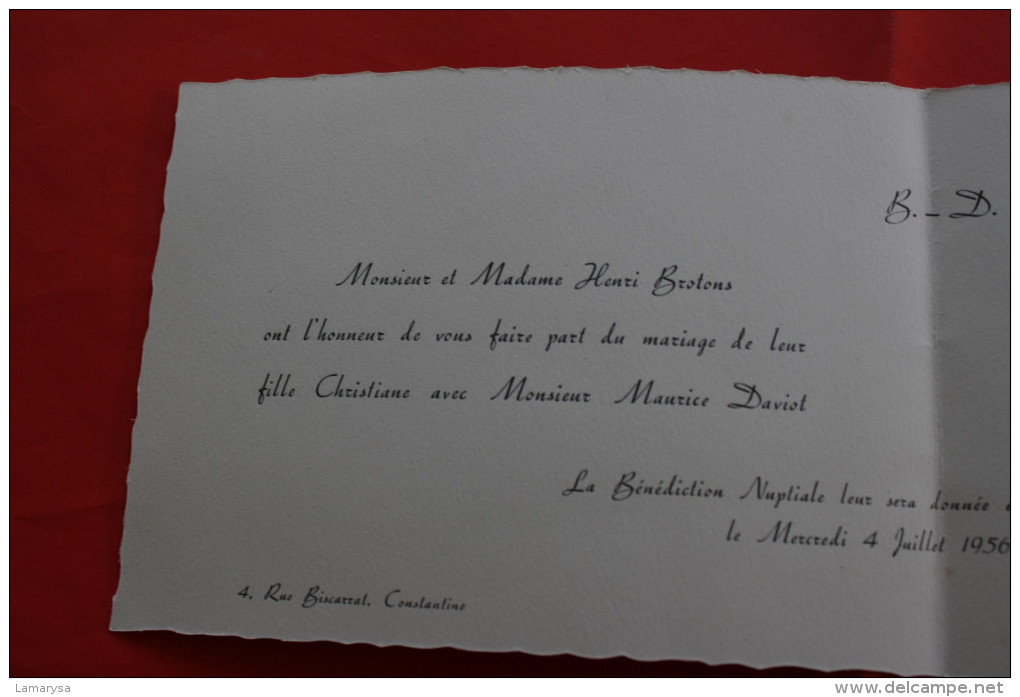 B. – D.
Monsieur et Madame Henri Brotons
ont l'honneur de vous faire part du mariage de leur
fille Christiane avec Monsieur Maurice Daviot
La Bénédiction Nuptiale leur sera donnée
le Mercredi 4 Juillet 1956
4, Rue Biscarrat, Constantine
Lamarysa
www.delcampe.net